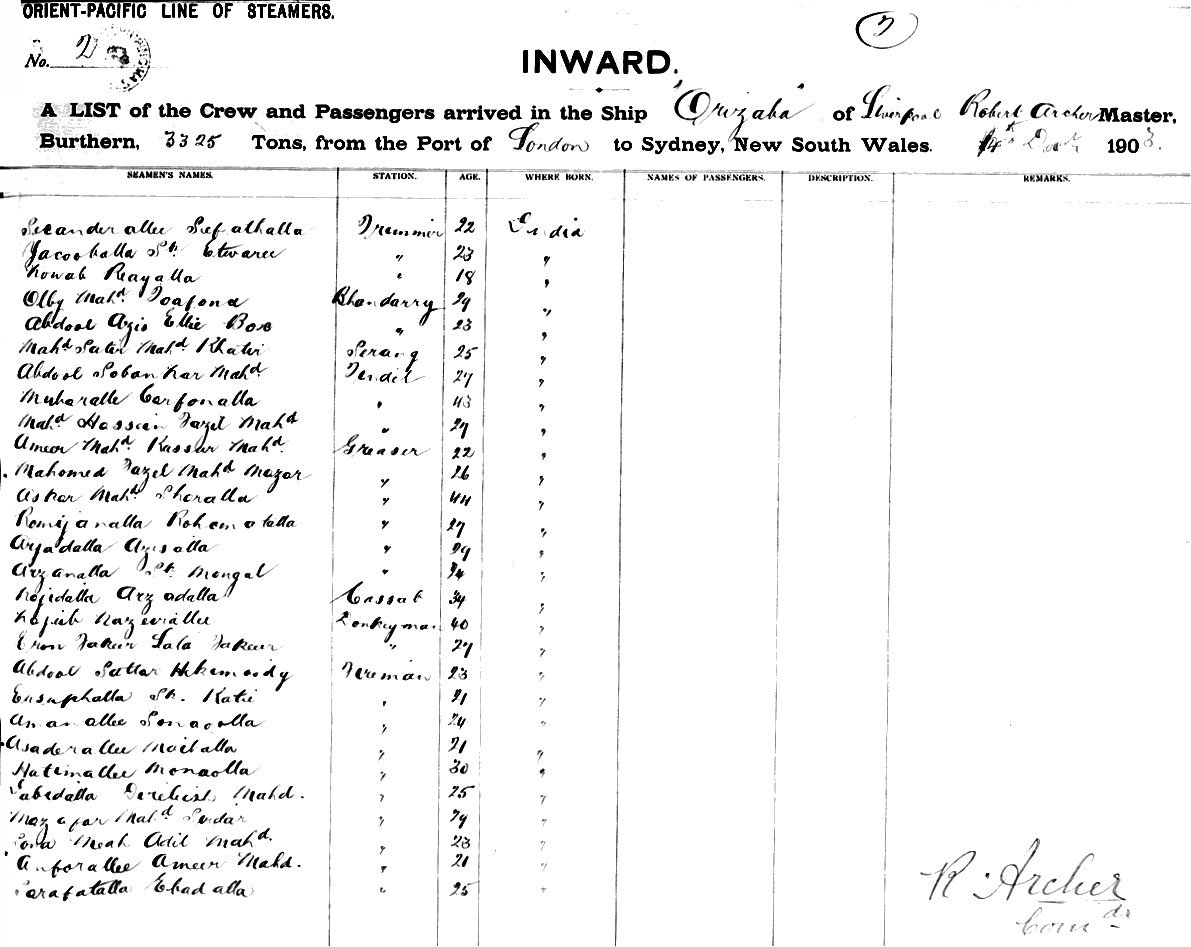 ORIENT-PACIFIC LINE OF STEAMERS.
No. 2
7
INWARD.
A LIST of the Crew and Passengers arrived in the Ship "Orizaba" of Liverpool Robert Archer Master,
Burthern, 3325 Tons, from the Port of London to Sydney, New South Wales. 1903.
SEAMEN'S NAMES. STATION. AGE. WHERE BORN. NAMES OF PASSENGERS. DESCRIPTION. REMARKS.
Secander allee Sefathalla Trimmer 22 India
Jacooballa Sk. Etwaree " 23 "
Nowab Reayalla " 18 "
Olby Mahd. Toafona Bhandarry 29 "
Abdool Azis Ellie Box " 23 "
Mahd Sater Mahd Khatir Serang 25 "
Abdool Soban Kar Mahd Tindil 27 "
Mubaralle Carfonalla " 43 "
Mahd Hossein Fazil Mahd " 27 "
Ameer Mahd. Kassur Mahd. Greaser 22 "
Mahomed Fazel Mahd Mazar " 26 "
Askar Mahd Sheralla " 44 "
Romijanalla Rohamotalla " 27 "
Aryadalla Azisalla " 29 "
Arzanalla Sk. Mongal " 24 "
Nojidalla Arzadalla Cassab 34 "
Najeeb Nazeirallee Donkeyman 40 "
Eron Fakeer Lala Fakeer " 27 "
Abdool Sattar Hkemoody Fireman 23 "
Eusuphalla Sk. Katie " 21 "
Amanallee Sonaoolla " 24 "
Asaderallee Moiballa " 21 "
Hatimallee Monaolla " 30 "
Labidalla Derikish Mahd. " 25 "
Mozafar Mahd Sirdar " 29 "
Sona Meah Adil Mahd. " 23 "
Anforallee Ameer Mahd. " 21 "
Sarafatalla Ebadalla " 25 "
R. Archer
Comdr